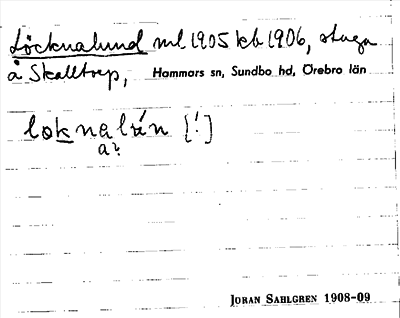 Löcknalund ml 1905 kb 1906, stuga
å Skalltorp, Hammars sn, Sundbo hd, Örebro län
loknalún [!]
a?
JORAN SAHLGREN 1908-09